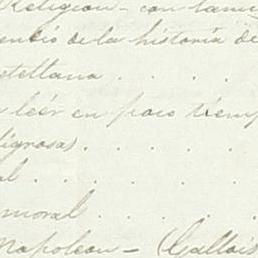 Religion - con lami
endio de la historia de
stellana . . . .
leér en poco tiemp
ligrosas . . . .
al . . . . .
moral . . . .
Napoleon - (Gallois